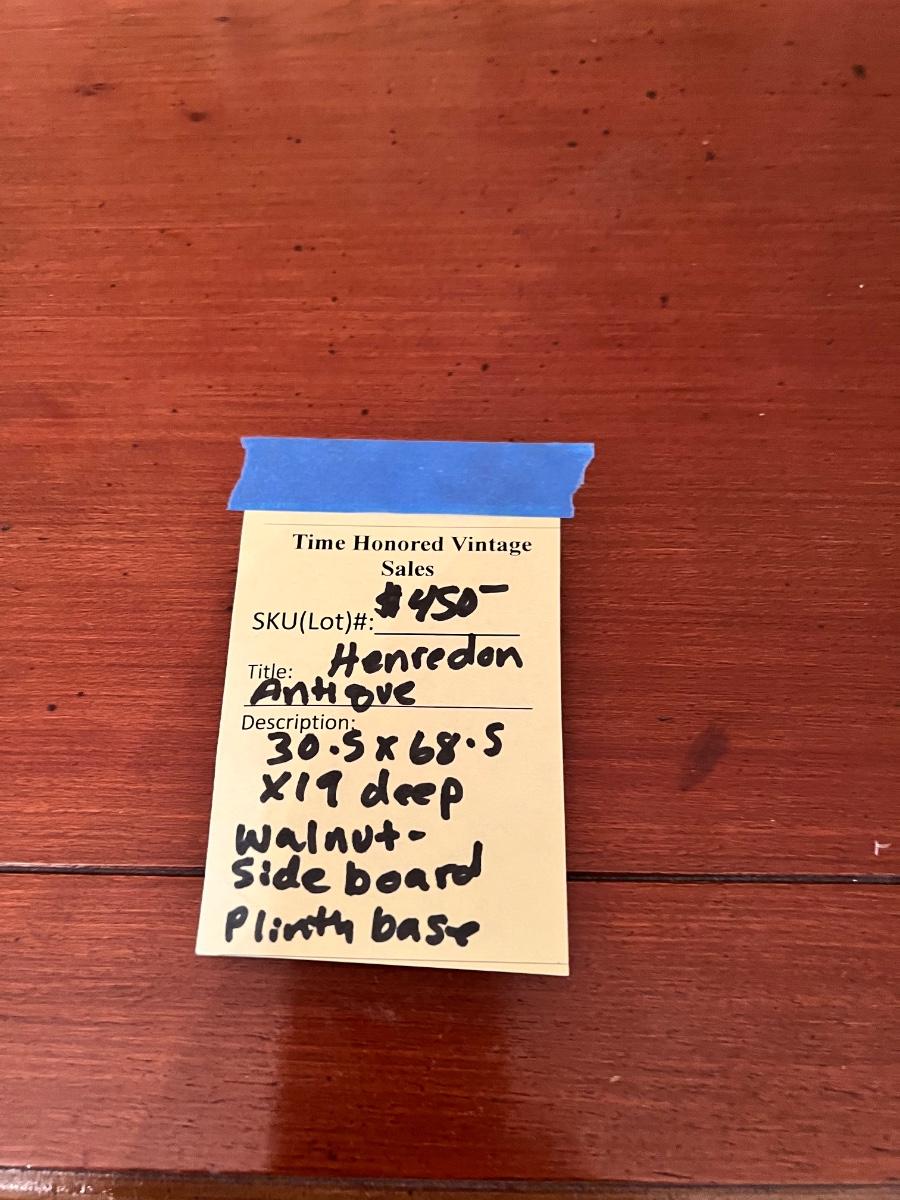 Time Honored Vintage
Sales
SKU(Lot)#: $450-
Title: Henredon
Antique
Description:
30.5 x 68.5
x19 deep
walnut-
side board
Plinth base